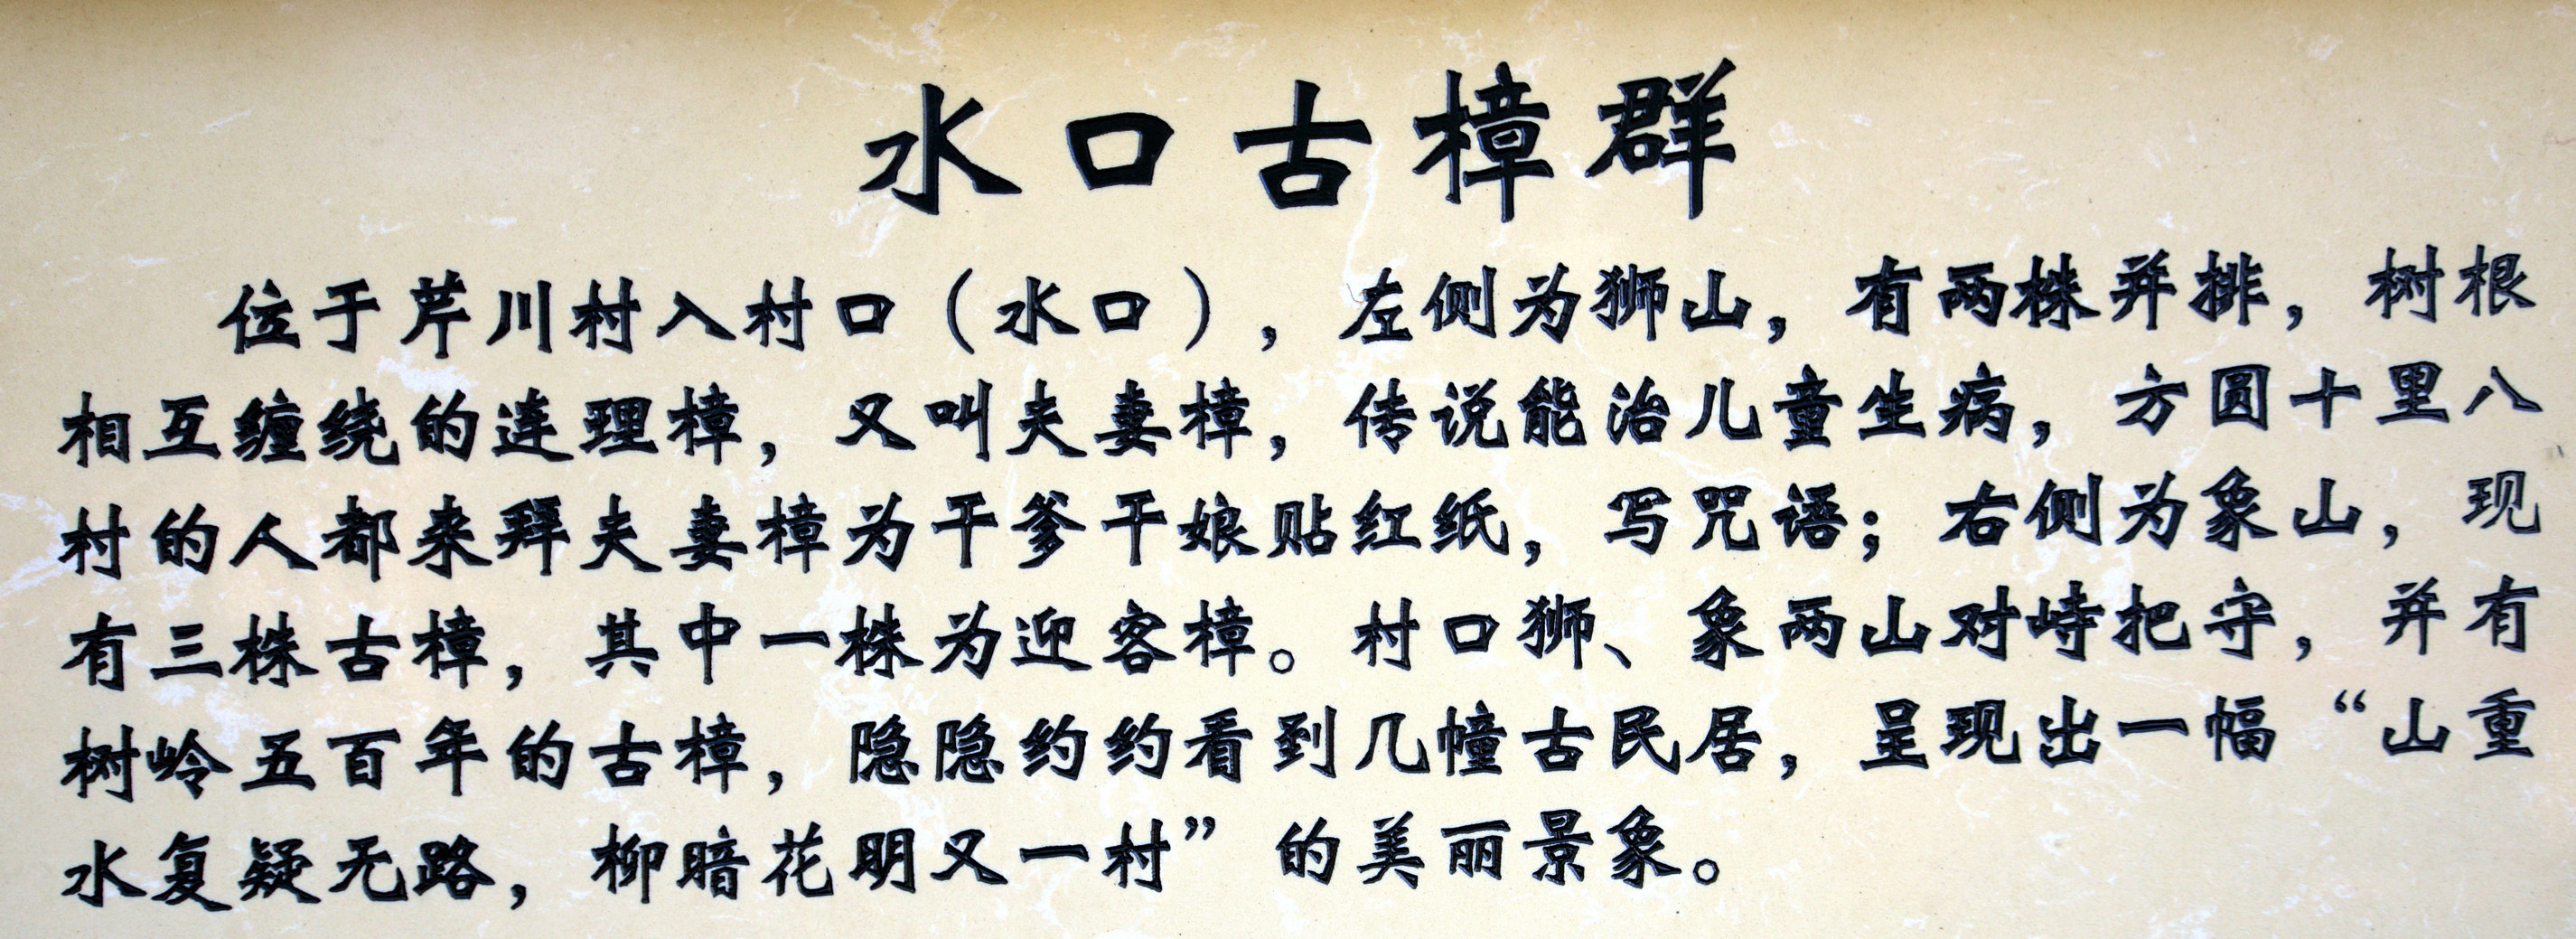 水口古樟群
位于芹川村入村口（水口），左侧为狮山，有两株并排，树根
相互缠绕的连理樟，又叫夫妻樟，传说能治儿童生病，方圆十里八
村的人都来拜夫妻樟为干爹干娘贴红纸，写咒语；右侧为象山，现
有三株古樟，其中一株为迎客樟。村口狮、象两山对峙把守，并有
树岭五百年的古樟，隐隐约约看到几幢古民居，呈现出一幅“山重
水复疑无路，柳暗花明又一村”的美丽景象。